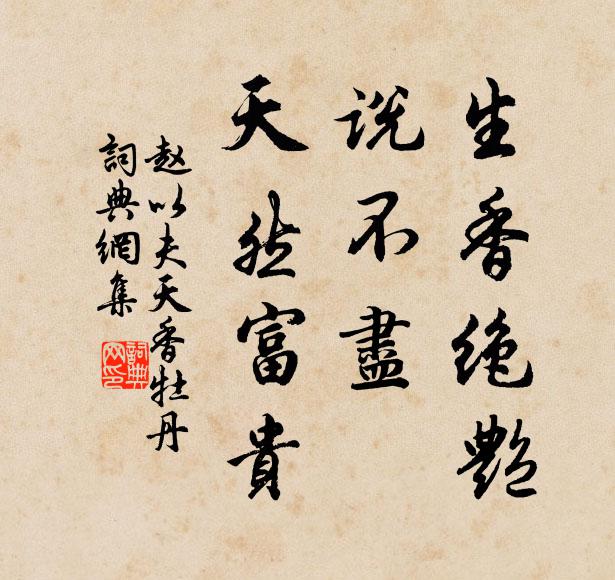 生香絶艷
說不盡
天然富貴
赵以夫天香牡丹
詞典網集
詞典
网印